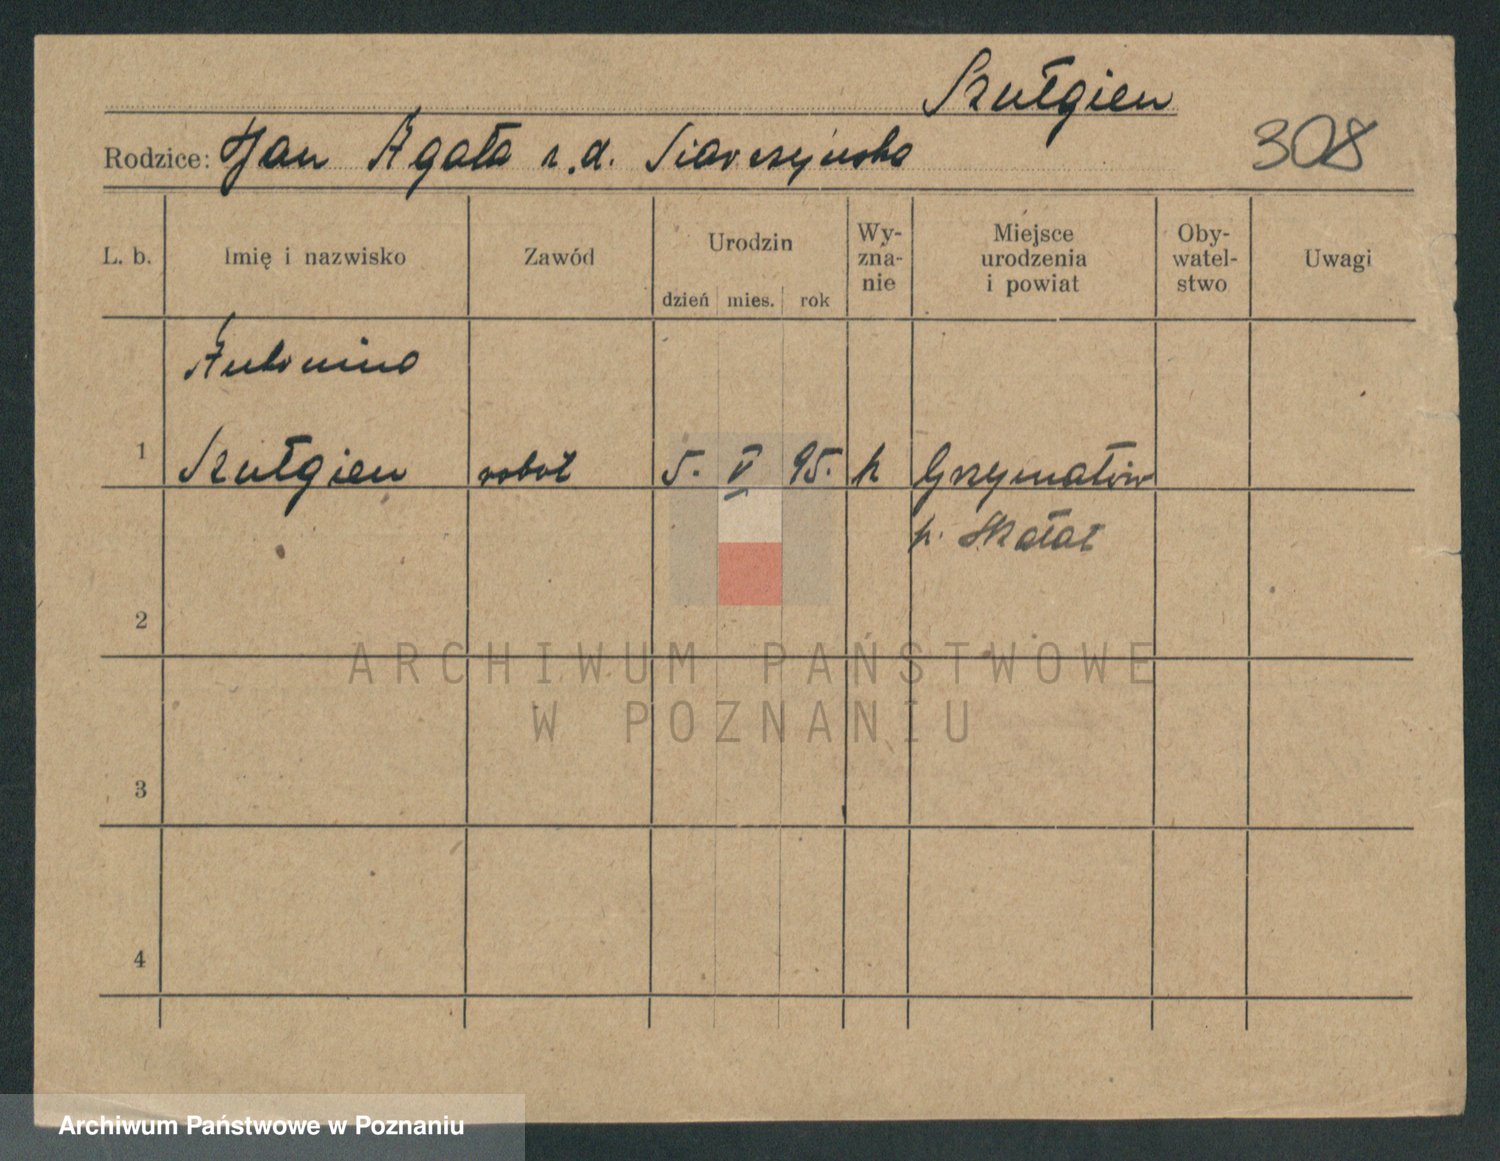 Szułgien
Rodzice: Jan Agata z.d. Siarczyńska
308
L. b. Imię i nazwisko Zawód Urodzin dzień mies. rok Wy-zna-nie Miejsce urodzenia i powiat Oby-watel-stwo Uwagi
Antonina
1 Szułgien robot 5. V 95. k Grzymałów
p. Skałat
2
3
4
ARCHIWUM PAŃSTWOWE
W POZNANIU
Archiwum Państwowe w Poznaniu